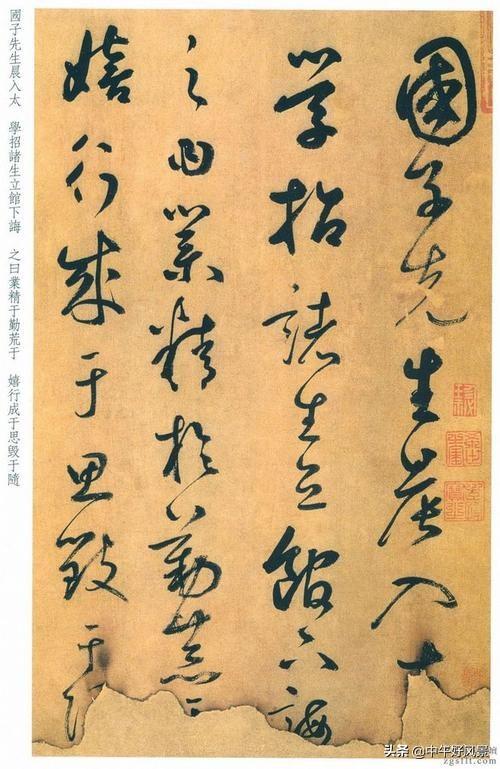 國子先生晨入大
學招諸生立館下誨
之曰業精於勤荒于
嬉行成于思毀于
國子先生晨入太 學招諸生立館下誨 之曰業精于勤荒于 嬉行成于思毀于隨
头条 @中午好风景